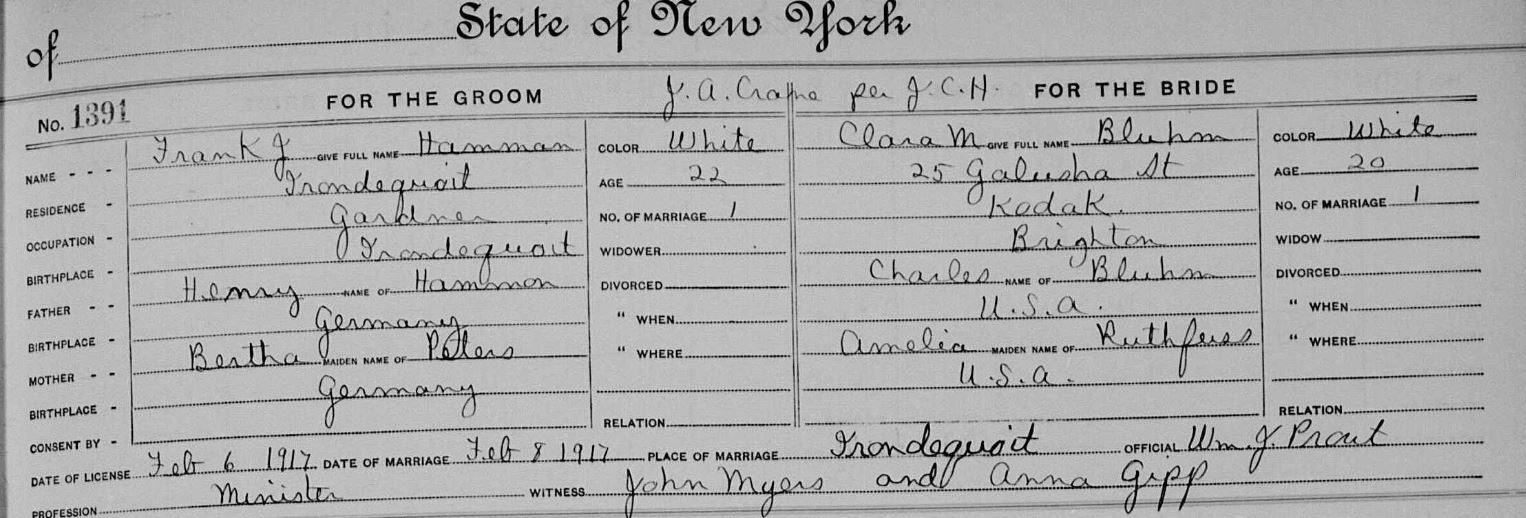 of State of New York
No. 1391 FOR THE GROOM J. A. per J. C. H. FOR THE BRIDE
NAME - - - Frank J GIVE FULL NAME Hamman COLOR White Clara M GIVE FULL NAME Bluhm COLOR White
RESIDENCE - Irondequoit AGE 22 25 Galusha St AGE 20
OCCUPATION - Gardner NO. OF MARRIAGE 1 Kodak. NO. OF MARRIAGE 1
BIRTHPLACE - Irondequoit WIDOWER Brighton WIDOW
FATHER - - Henry NAME OF Hammon DIVORCED Charles NAME OF Bluhm DIVORCED
BIRTHPLACE - Germany " WHEN U.S.A. " WHEN
MOTHER - - Bertha MAIDEN NAME OF Peters " WHERE Amelia MAIDEN NAME OF Ruthfuss " WHERE
BIRTHPLACE - Germany U.S.A.
CONSENT BY - RELATION RELATION
DATE OF LICENSE Feb 6 1917 DATE OF MARRIAGE Feb 8 1917 PLACE OF MARRIAGE Irondequoit OFFICIAL Wm. J. Prout
PROFESSION Minister WITNESS John Myers and Anna Gipp